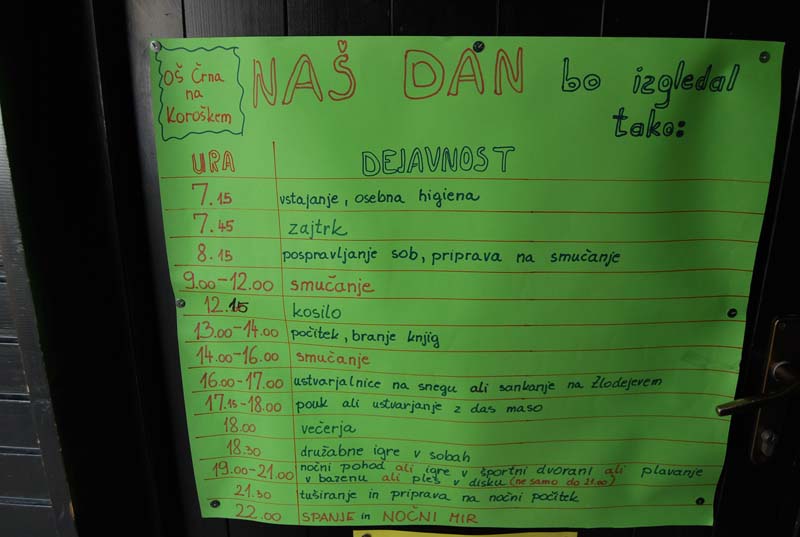 OŠ Črna
na
Koroškem
NAŠ DAN bo izgledal
tako:
URA DEJAVNOST
7.15 vstajanje, osebna higiena
7.45 zajtrk
8.15 pospravljanje sob, priprava na smučanje
9.00-12.00 smučanje
12.15 kosilo
13.00-14.00 počitek, branje knjig
14.00-16.00 smučanje
16.00-17.00 ustvarjalnice na snegu ali sankanje na Zlodejevem
17.15-18.00 pouk ali ustvarjanje z das maso
18.00 večerja
18.30 družabne igre v sobah
19.00-21.00 nočni pohod ali igre v športni dvorani ali plavanje
v bazenu ali ples v disku (ne samo do 21.00)
21.30 tuširanje in priprava na nočni počitek
22.00 SPANJE in NOČNI MIR